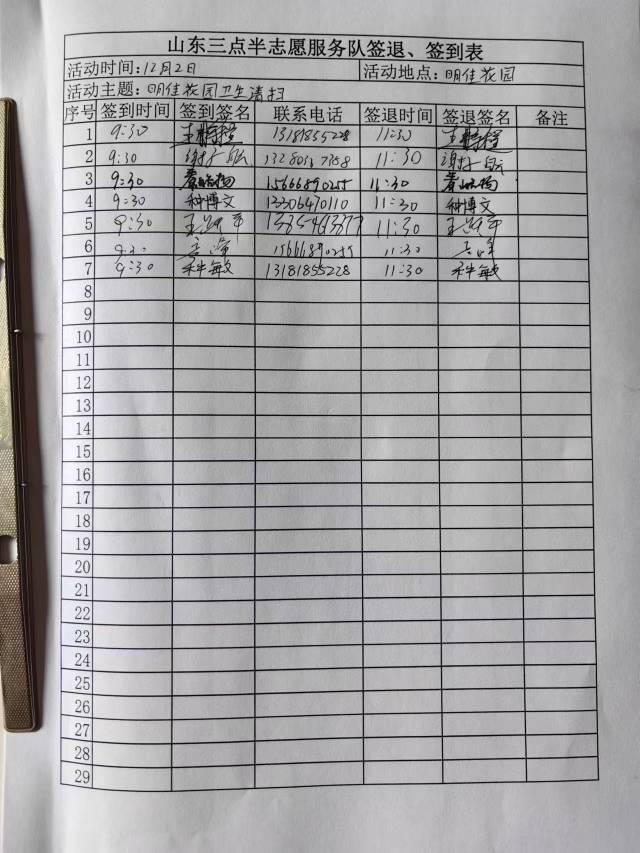 山东三点半志愿服务队签退、签到表
活动时间:12月2日 活动地点:明佳花园
活动主题:明佳花园卫生清扫
序号 签到时间 签到签名 联系电话 签退时间 签退签名 备注
1 9:30 13181855228 11:30
2 9:30 11:30
3 9:30 15666890255 11:30
4 9:30 种博文 13306470110 11:30 种博文
5 9:30 11:30
6 9:30 15666890255 11:30
7 9:30 种敏 13181855228 11:30 种敏
8
9
10
11
12
13
14
15
16
17
18
19
20
21
22
23
24
25
26
27
28
29